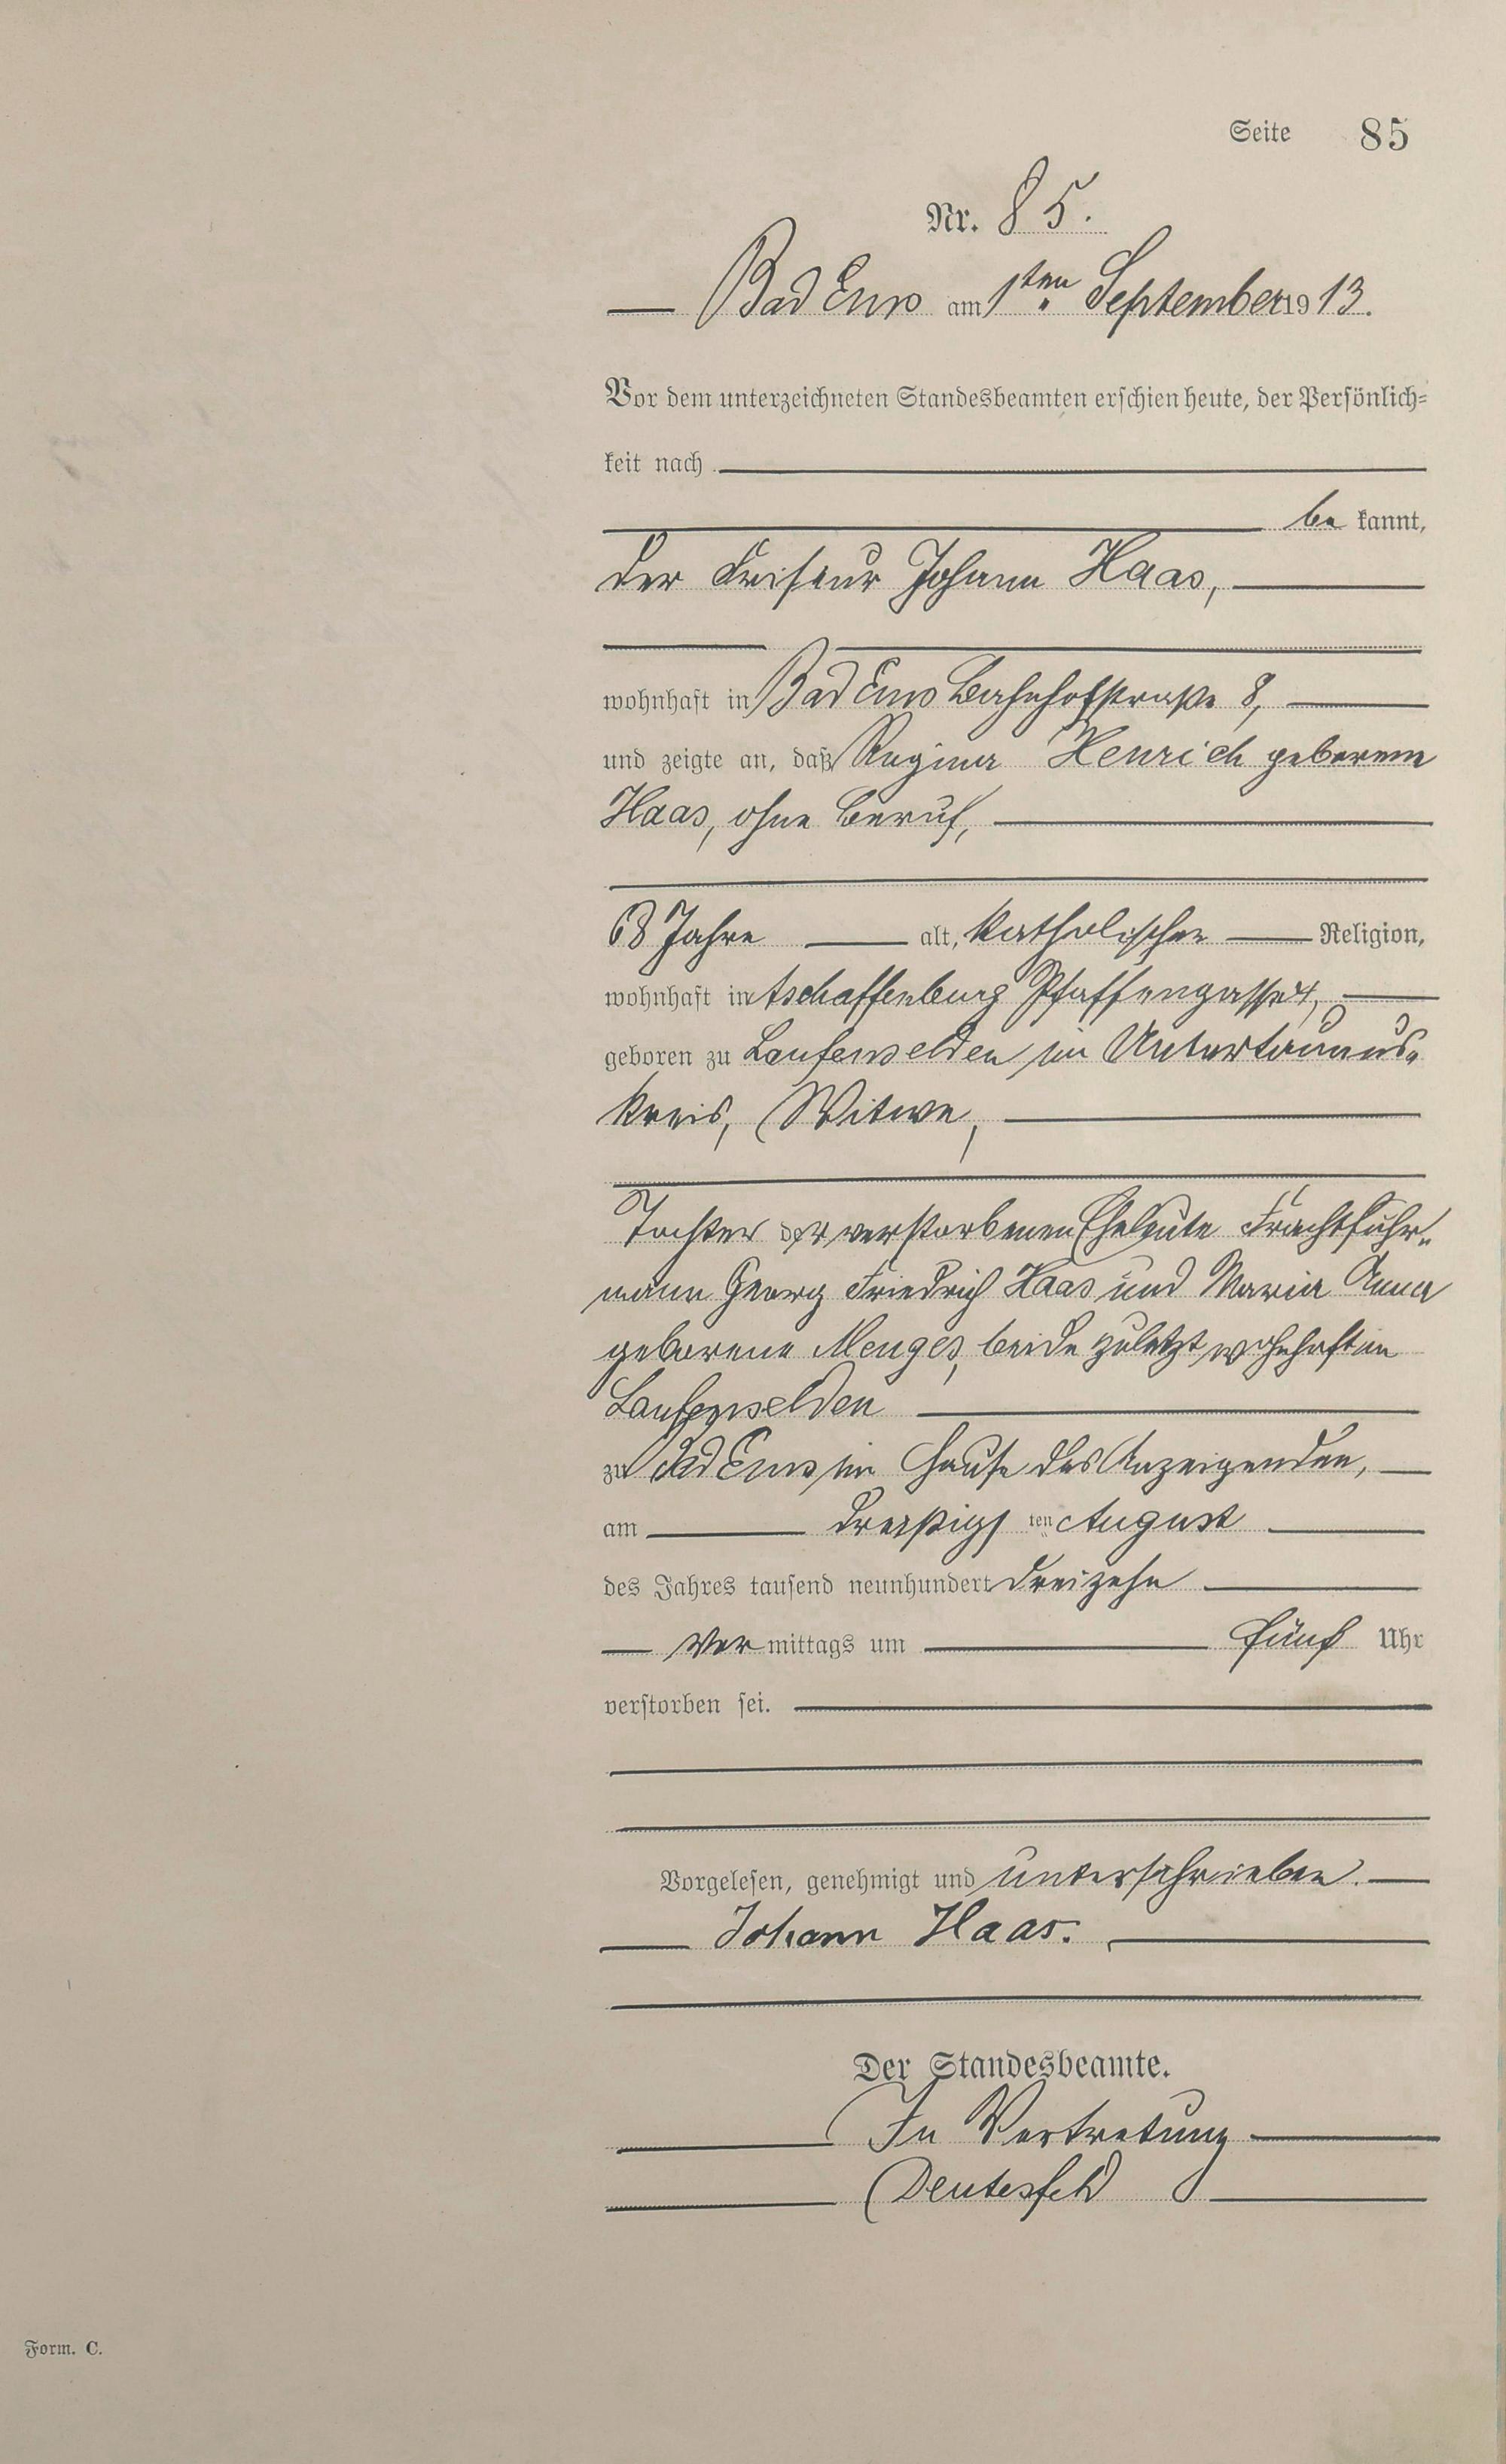 Seite 85
Nr. 85.
Bad Ems am 1ten September 1913.
Vor dem unterzeichneten Standesbeamten erschien heute, der Persönlich-
keit nach
be kannt,
der Friseur Johann Haas,
wohnhaft in Bad Ems Bahnhofstraße 8,
und zeigte an, daß Regina Henrich geborene
Haas, ohne Beruf,
68 Jahre alt, katholischer Religion,
wohnhaft in Aschaffenburg Pfaffengasse 4,
geboren zu Laufenselden im Untertaunus-
kreis, Witwe,
Tochter der verstorbenen Eheleute Frachtfuhr-
mann Georg Friedrich Haas und Maria Anna
geborene Menges, beide zuletzt wohnhaft in
Laufenselden
zu Bad Ems im Hause des Anzeigenden,
am dreißigsten August
des Jahres tausend neunhundert dreizehn
Vor mittags um fünf Uhr
verstorben sei.
Vorgelesen, genehmigt und unterschrieben.
Johann Haas.
Der Standesbeamte.
In Vertretung
Deutesfeld
Form. C.